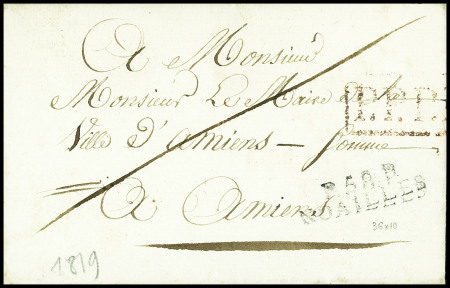 A Monsieur
Monsieur Le Maire de la
Ville d'Amiens — Somme
A Amiens
P.P.P.P.
P 59 P
NOAILLES
36x10
1819